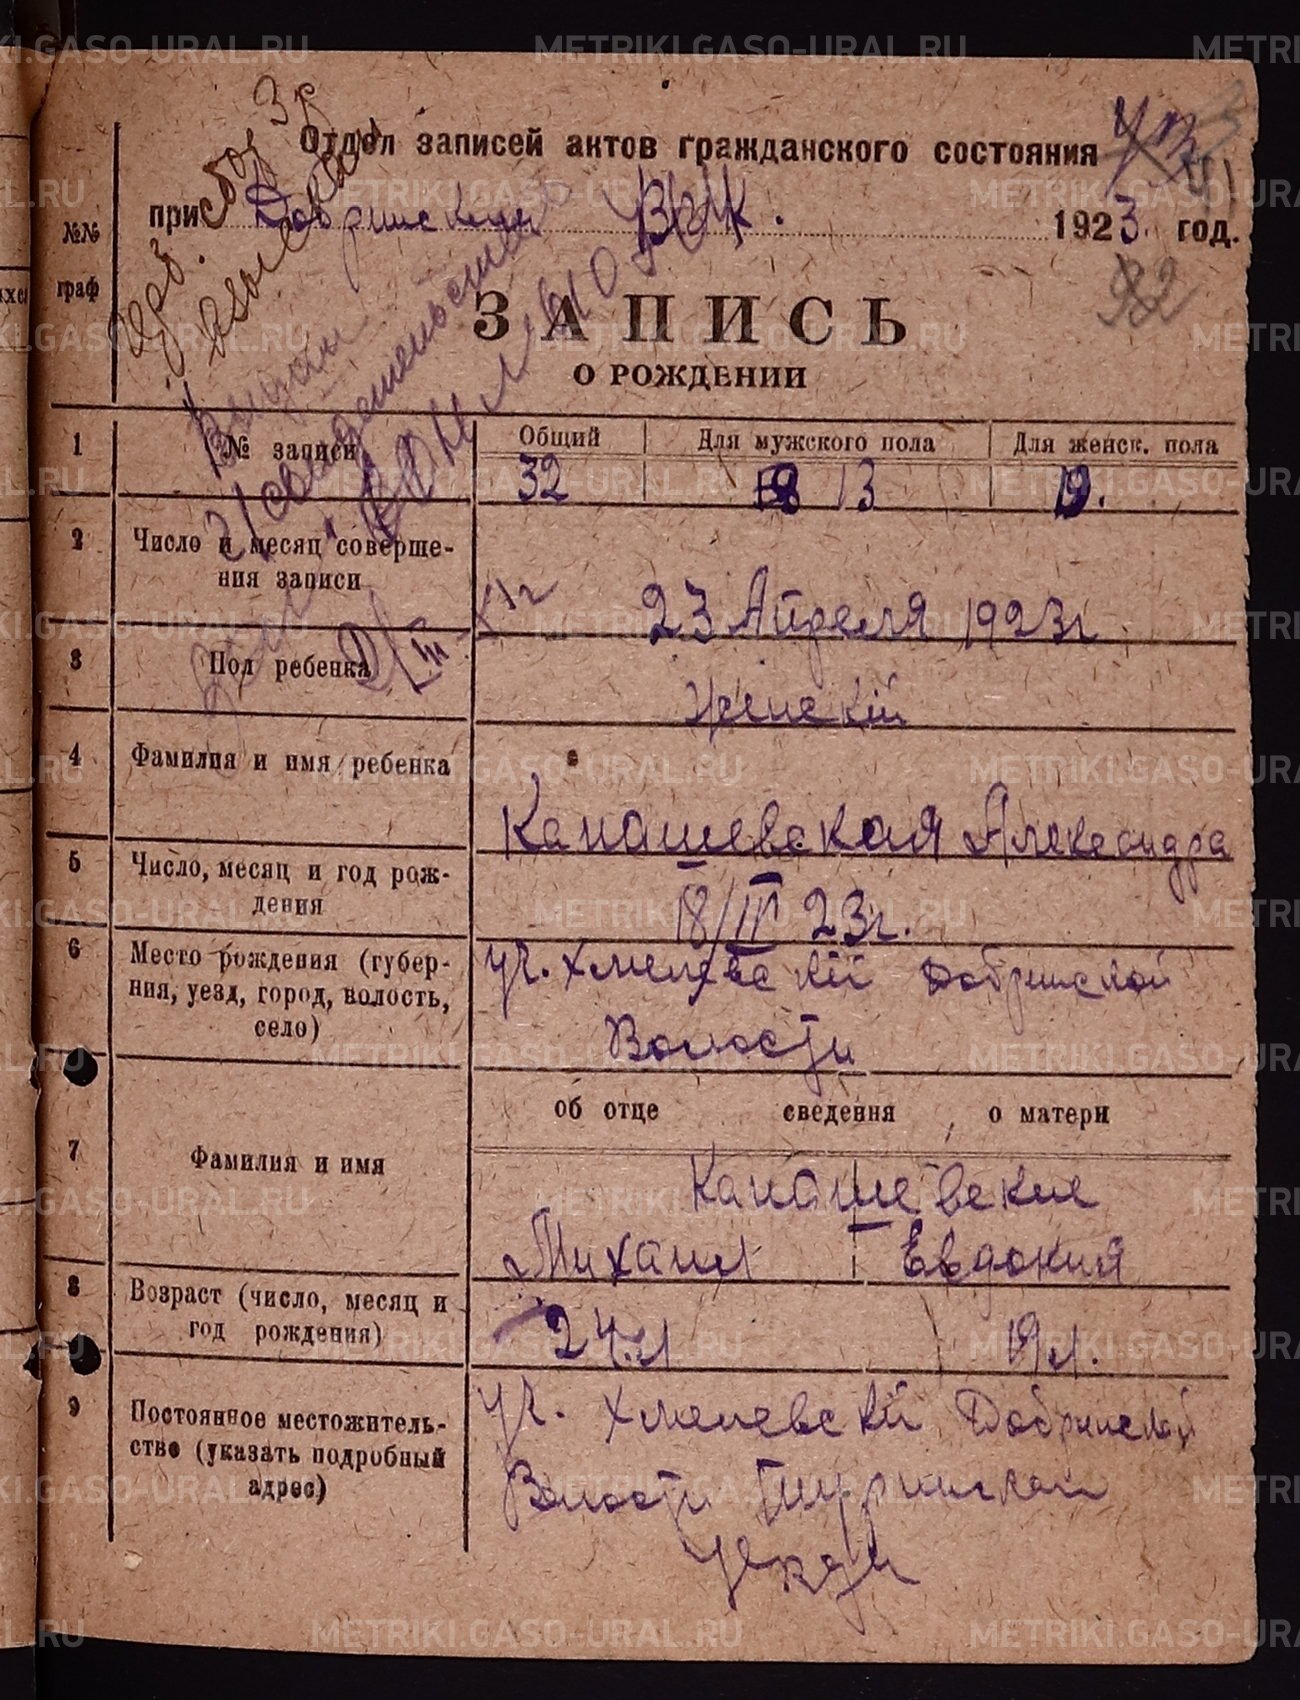 Отдел записей актов гражданского состояния
при Добринском ВИК. 1923 год.
№№ граф
ЗАПИСЬ
О РОЖДЕНИИ
1 № записи Общий Для мужского пола Для женск. пола
32 13 19.
2 Число и месяц соверше-
ния записи 23 Апреля 1923 г
3 Пол ребенка Женскiй
4 Фамилия и имя ребенка
Канашевская Александра
5 Число, месяц и год рож-
дения 18/IV 23 г.
6 Место рождения (губер-
ния, уезд, город, волость,
село)
уч. Хмелевскiй Добринской
Волости
об отце сведения о матери
7 Фамилия и имя
Канашевские
Михаил Евдокия
8 Возраст (число, месяц и
год рождения)
24 л 19 л.
9 Постоянное местожитель-
ство (указать подробный
адрес)
уч. Хмелевскiй Добринской
Волости
METRIKI.GASO-URAL.RU